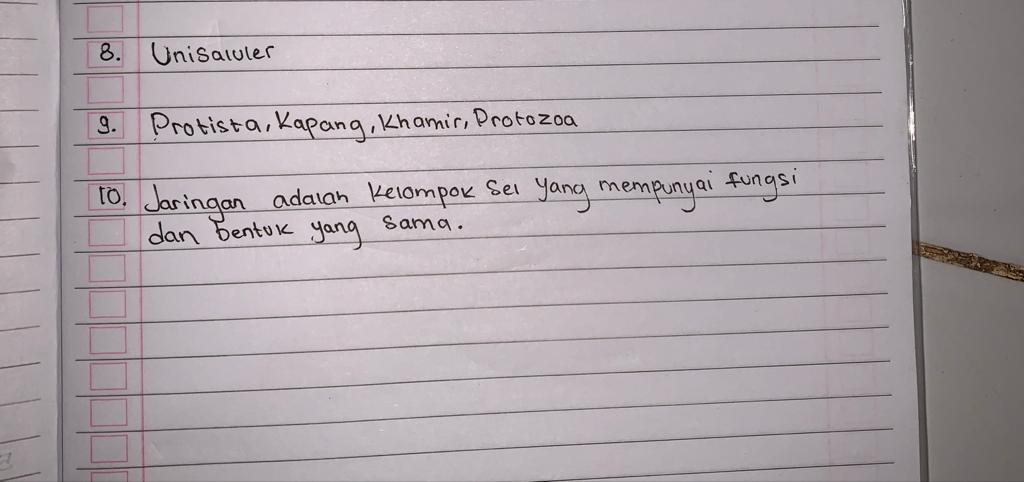 8. Unisaluler
9. Protista, Kapang, Khamir, Protozoa
10. Jaringan adalah kelompok sel yang mempunyai fungsi
dan bentuk yang sama.